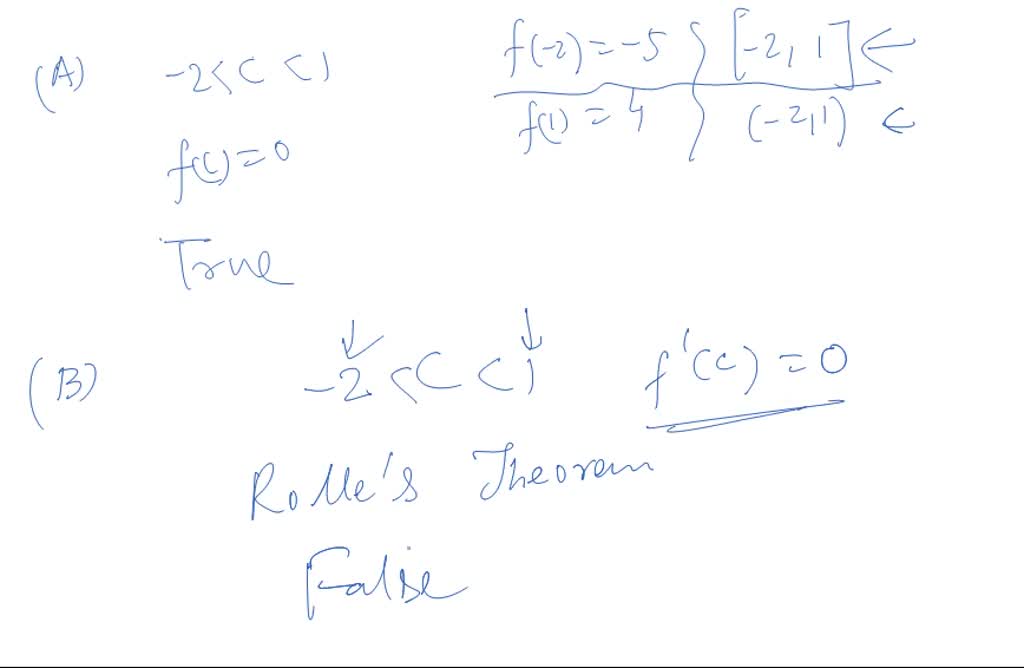 (A) -2<C<1 f(-2)=-5 } [-2,1] ←
f(1)=4 } (-2,1) ←
f(c)=0
True
(B) -2<C<1 f'(c)=0
Rolle's Theorem
False